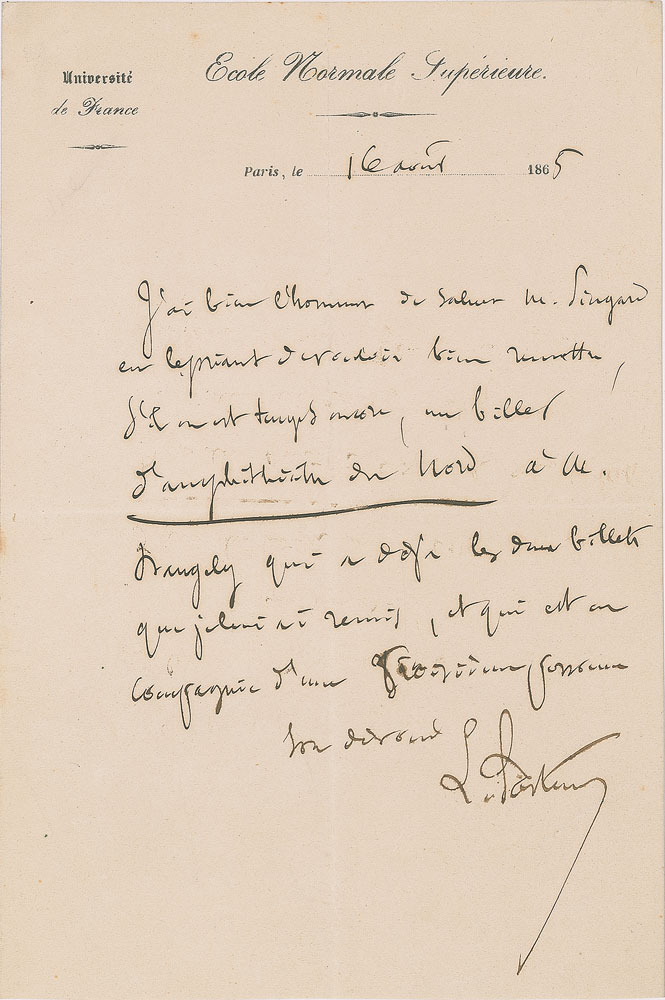 Université
de France
Ecole Normale Supérieure.
Paris, le 16 août 1865
J'ai bien l'honneur de saluer M. Pingard
en le priant de vouloir bien remettre,
s'il en est temps encore, un billet
d'amphithéâtre du Nord à M.
qui a déjà les deux billets
que je lui ai remis, et qui est en
compagnie d'une troisième personne
Son dévoué
L. Pasteur